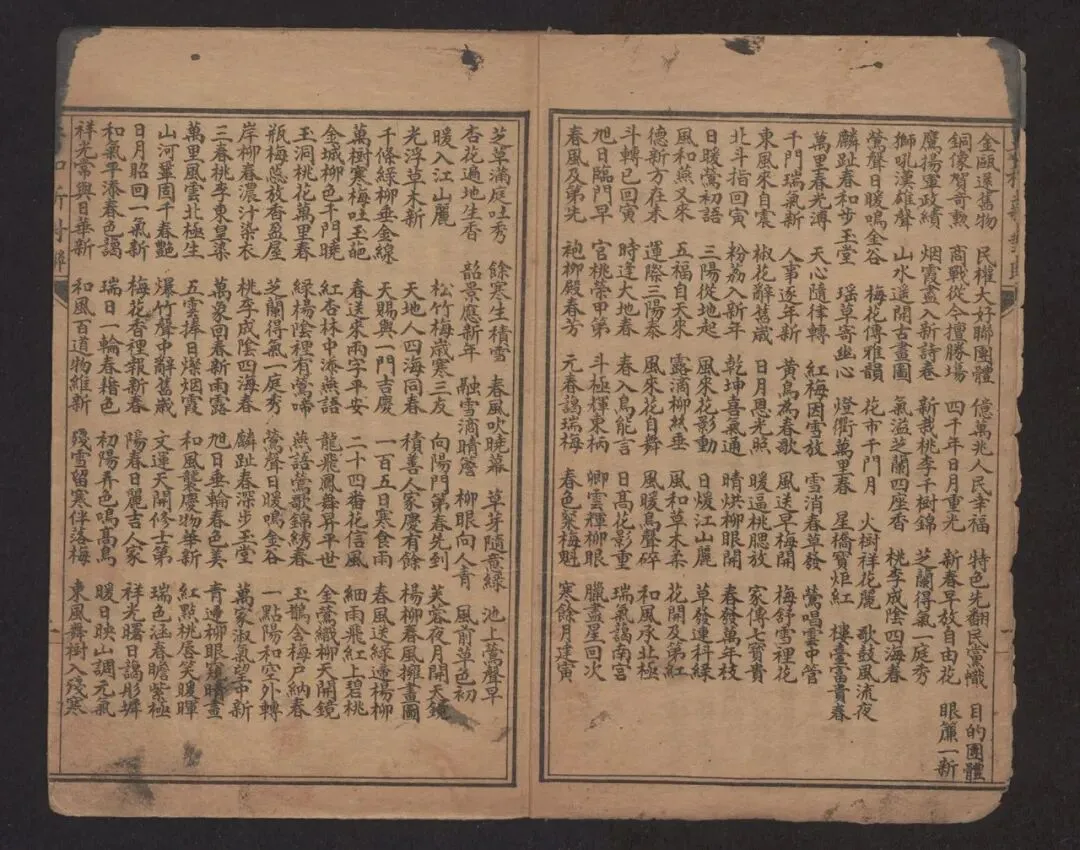 金甌還舊物 民權大好聯團體 億萬兆人民幸福 特色先翻民黨幟 目的團體
銅像賀奇勲 商戰從今擅勝塲 四千年日月重光 新春早放自由花 眼簾一新
鷹揚軍政績 烟霞盡入新詩卷 新栽桃李千樹錦 芝蘭得氣一庭秀
獅吼漢雄聲 山水遥開古畫圖 氣溢芝蘭四座香 桃李成陰四海春
鶯聲日暖鳴金谷 梅花傳雅韻 花市千門月 火樹祥花麗 歌鼓風流夜
麟趾春和步玉堂 瑶草寄幽心 燈衢萬里春 星橋寳炬紅 樓臺富貴春
萬里春光溥 天心隨律轉 紅梅因雪放 雪消春草發 鶯唱雲中管
千門瑞氣新 人事逐年新 黃鳥為春歌 風送早梅開 梅舒雪裡花
東風來自震 椒花辭舊歲 日月恩光照 暖逼桃腮放 家傳七寳貴
北斗指回寅 粉荔入新年 乾坤喜氣通 晴烘柳眼開 春發萬年枝
日暖鶯初語 三陽從地起 風來花影動 日煖江山麗 草發連科緑
風和燕又來 五福自天來 露滴柳絲垂 風和草木柔 花開及第紅
德新方在未 運際三陽泰 風來花自舞 風暖鳥聲碎 和風承北極
斗轉已回寅 時逢大地春 春入鳥能言 日髙花影重 瑞氣謁南宫
旭日臨門早 官桃榮甲第 斗極輝東柄 卿雲輝柳眼 臘盡星回次
春風及第先 袍柳殿春芳 元春謁瑞梅 春色 梅魁 寒餘月建寅
芝草滿庭吐秀 餘寒生積雪 春風吹曉幕 草芽隨意緑 池上鶯聲早
杏花遍地生香 韶景應新年 融雪滴晴簷 柳眼向人青 風前草色初
暖入江山麗 松竹梅歲寒三友 向陽門第春先到 芙蓉夜月開天鏡
光浮草木新 天地人四海同春 積善人家慶有餘 楊柳春風擁畫圖
千條綠柳垂金線 天賜與一門吉慶 一百五日寒食雨 春風送緑遶楊柳
萬樹寒梅吐玉葩 春送來兩字平安 二十四番花信風 細雨飛紅上碧桃
金城柳色千門曉 紅杏林中添燕語 龍飛鳳舞昇平世 金鶯織柳天開鏡
玉洞桃花萬里春 綠楊陰裡有鶯啼 燕語鶯歌錦綉春 玉鵲含梅戸納春
瓶梅憨放香盈屋 芝蘭得氣一庭秀 鶯聲日暖鳴金谷 一點陽和空外轉
岸柳春濃汁染衣 桃李成陰四海春 麟趾春深步玉堂 萬家淑氣望中新
三春桃李東皇染 萬象回春新雨露 旭日垂輪春色美 青邊柳眼窺晴晝
萬里風雲北極生 五雲捧日燦烟霞 和風襲慶物華新 紅點桃唇笑暖暉
山河鞏固千春艶 爆竹聲中辭舊歲 文運天開修士第 瑞色涵春瞻紫極
日月昭回一氣新 梅花香裡報新春 陽春日麗吉人家 祥光曙日謁彤墀
和氣平添春色藹 瑞日一輪春楷色 初陽弄色鳴髙鳥 暖日映山調元氣
祥光常與日華新 和風百道物維新 殘雪留寒伴落梅 東風舞樹入殘寒